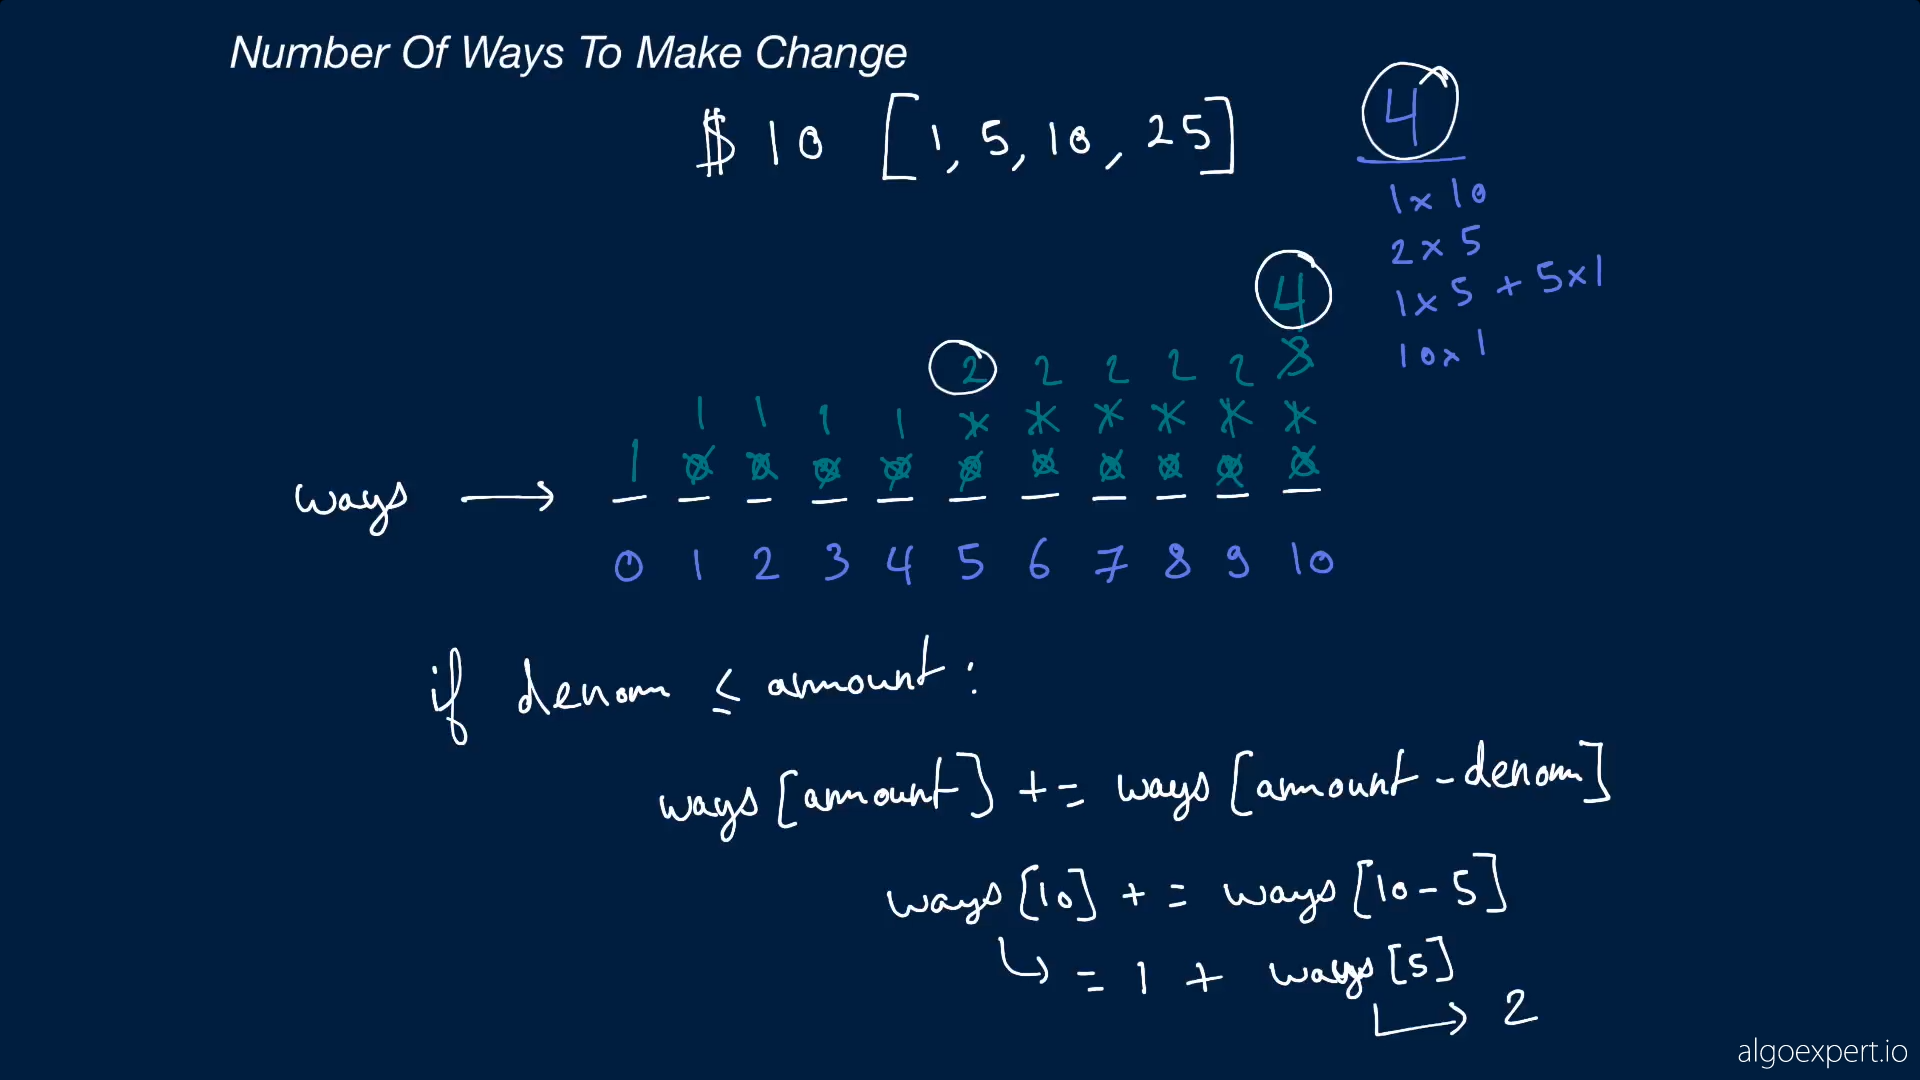 Number Of Ways To Make Change
$10 [1, 5, 10, 25]
4
1x10
2x5
1x5 + 5x1
10x1
4
2 2 2 2 2
1 1 1 1
1
ways →
0 1 2 3 4 5 6 7 8 9 10
if denom ≤ amount:
ways[amount] += ways[amount-denom]
ways[10] += ways[10-5]
↳ = 1 + ways[5]
↳ 2
algoexpert.io